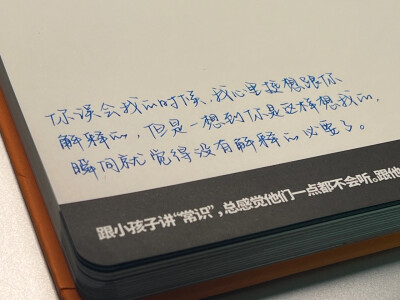 你误会我的时候，我心里挺想跟你
解释的，但是一想到你是这样想我的，
瞬间就觉得没有解释的必要了。
跟小孩子讲“常识”，总感觉他们一点都不会听。跟他